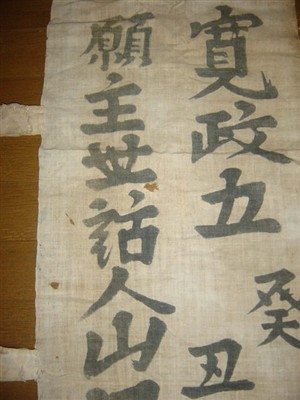 寛政五癸丑
願主世話人山